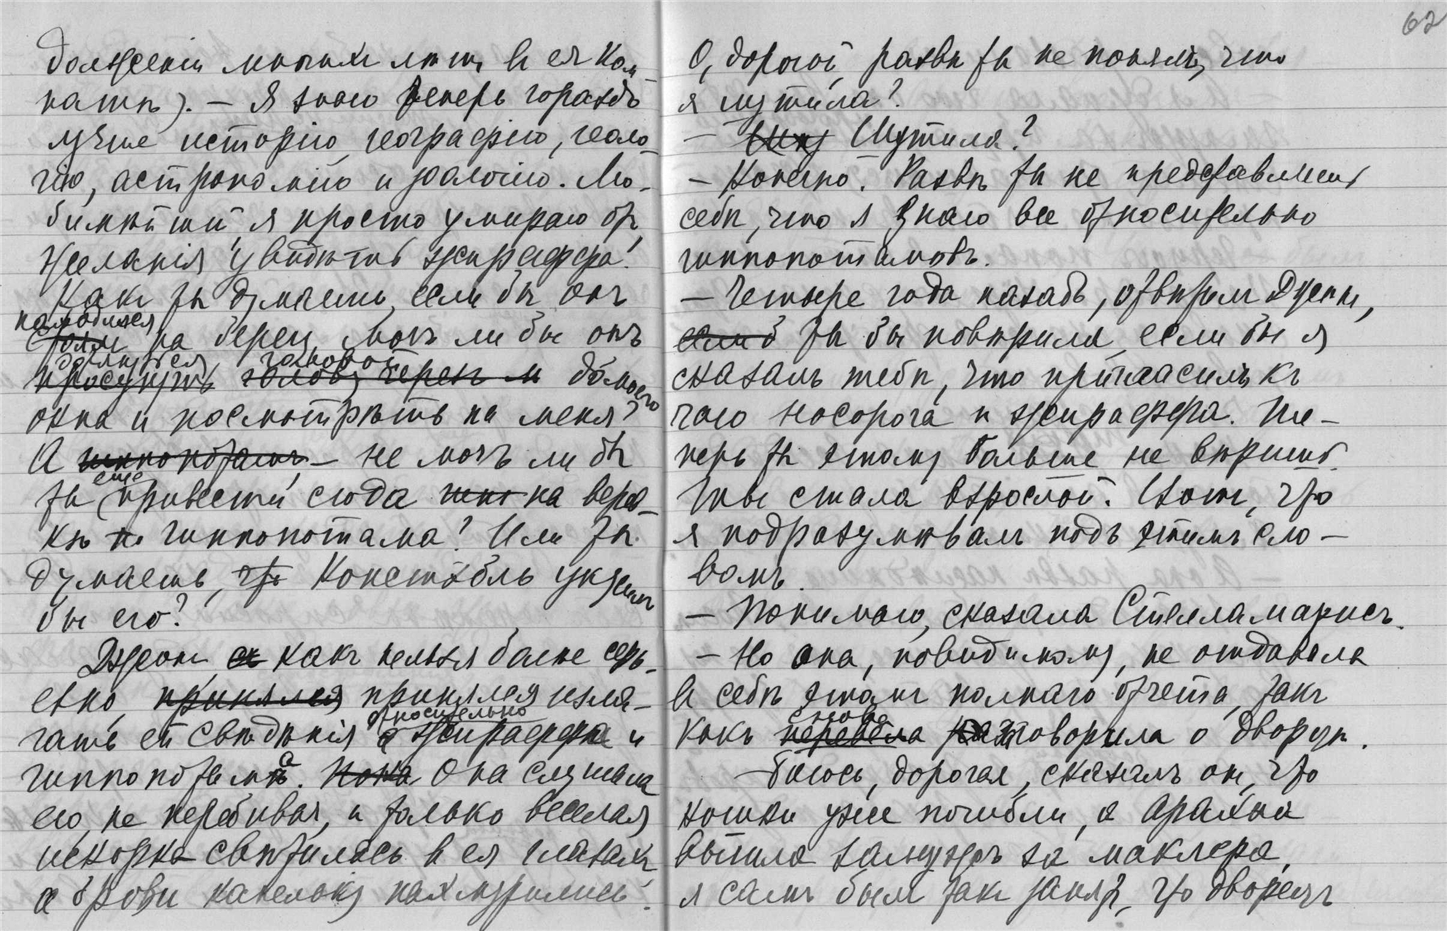 должении многих лѣтъ в ея ком-
натѣ). – Я знаю теперь гораздо
лучше исторію, географію, геоло-
гію, астрономію и зоологію. Лю-
бимѣйшій, я просто умираю от
желанія увидѣть жираффа.
Какъ ты думаешь, если бы онъ
находился
стоялъ на берегу, могъ ли бы онъ
дотянуться головой
просунуть голову черезъ м до моего
окна и посмотрѣть на меня?
А гиппопотамъ – не могъ ли бы
еще
ты привести сюда гип на верев-
кѣ по гиппопотама? Или ты
думаешь, что Констэбль укуситъ
бы его?
Джонъ ск какъ нельзя болѣе серь-
езно принялся принялся изла-
относительно
гать ей свѣдѣнія о жираффа и
гиппопотама. Пока Она слушала
его, не перебивая, и только веселая
искорка свѣтилась в ея глазахъ
а брови капельку нахмурились.
62
О, дорогой, развѣ ты не понялъ, что
я шутила?
– Шу Шутила?
– Конечно. Развѣ ты не представляешь
себѣ, что я знаю все относительно
гиппопотамовъ.
– Четыре года назадъ, отвѣтилъ Джонъ,
если б ты бы повѣрила если бы я
сказалъ тебѣ, что пригласилъ къ
чаю носорога и жираффа. Те-
перь ты этому больше не вѣришь.
Ты стала взрослой. Вотъ, что
я подразумѣвалъ подъ этимъ сло-
вомъ
– Понимаю, сказала Стелламарисъ.
– Но она, повидимому, не отдавала
в себѣ этомъ полнаго отчета, такъ
снова
какъ перевела заговорила о дворцѣ.
– Боюсь, дорогая, сказалъ он, что
кошки уже погибли, а Арахна
вышла замужъ за маклера,
я самъ был так занятъ, что дворецъ